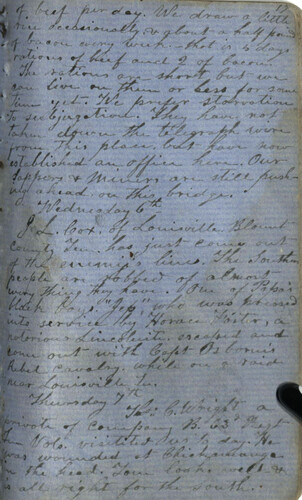 of beef per day. We draw a little
rice occasionally & about a half pound
of bacon every week - that is 5 days
rations of beef and 2 of bacon.
The rations are short, but we
can live on them or less for some
time yet. We prefer starvation
to subjugation. They have not
taken down the telegraph wire
from this place, but have now
established an office here. Our
Sappers & Miners are still push-
ing ahead on this bridge.
Wednesday 6th
J. L. Cox, of Louisville Blount
County, Ten. has just come out
of the enemie's lines. The South
people are robbed of almost
every thing they have. One of
black boys "Jep" who was pressed
into service by Horace Foster, a
notorious Lincolnite, escaped and
come out with Capt Osborn's
Rebel cavalry, while on a raid
near Louisville Tn.
Thursday 7th
Thos C. Wright a
private of company B. 63d Regt
Vols. visitited us to day. He
was wounded at Chickamauga
in the head. Tom looks well &
is all right for the South.